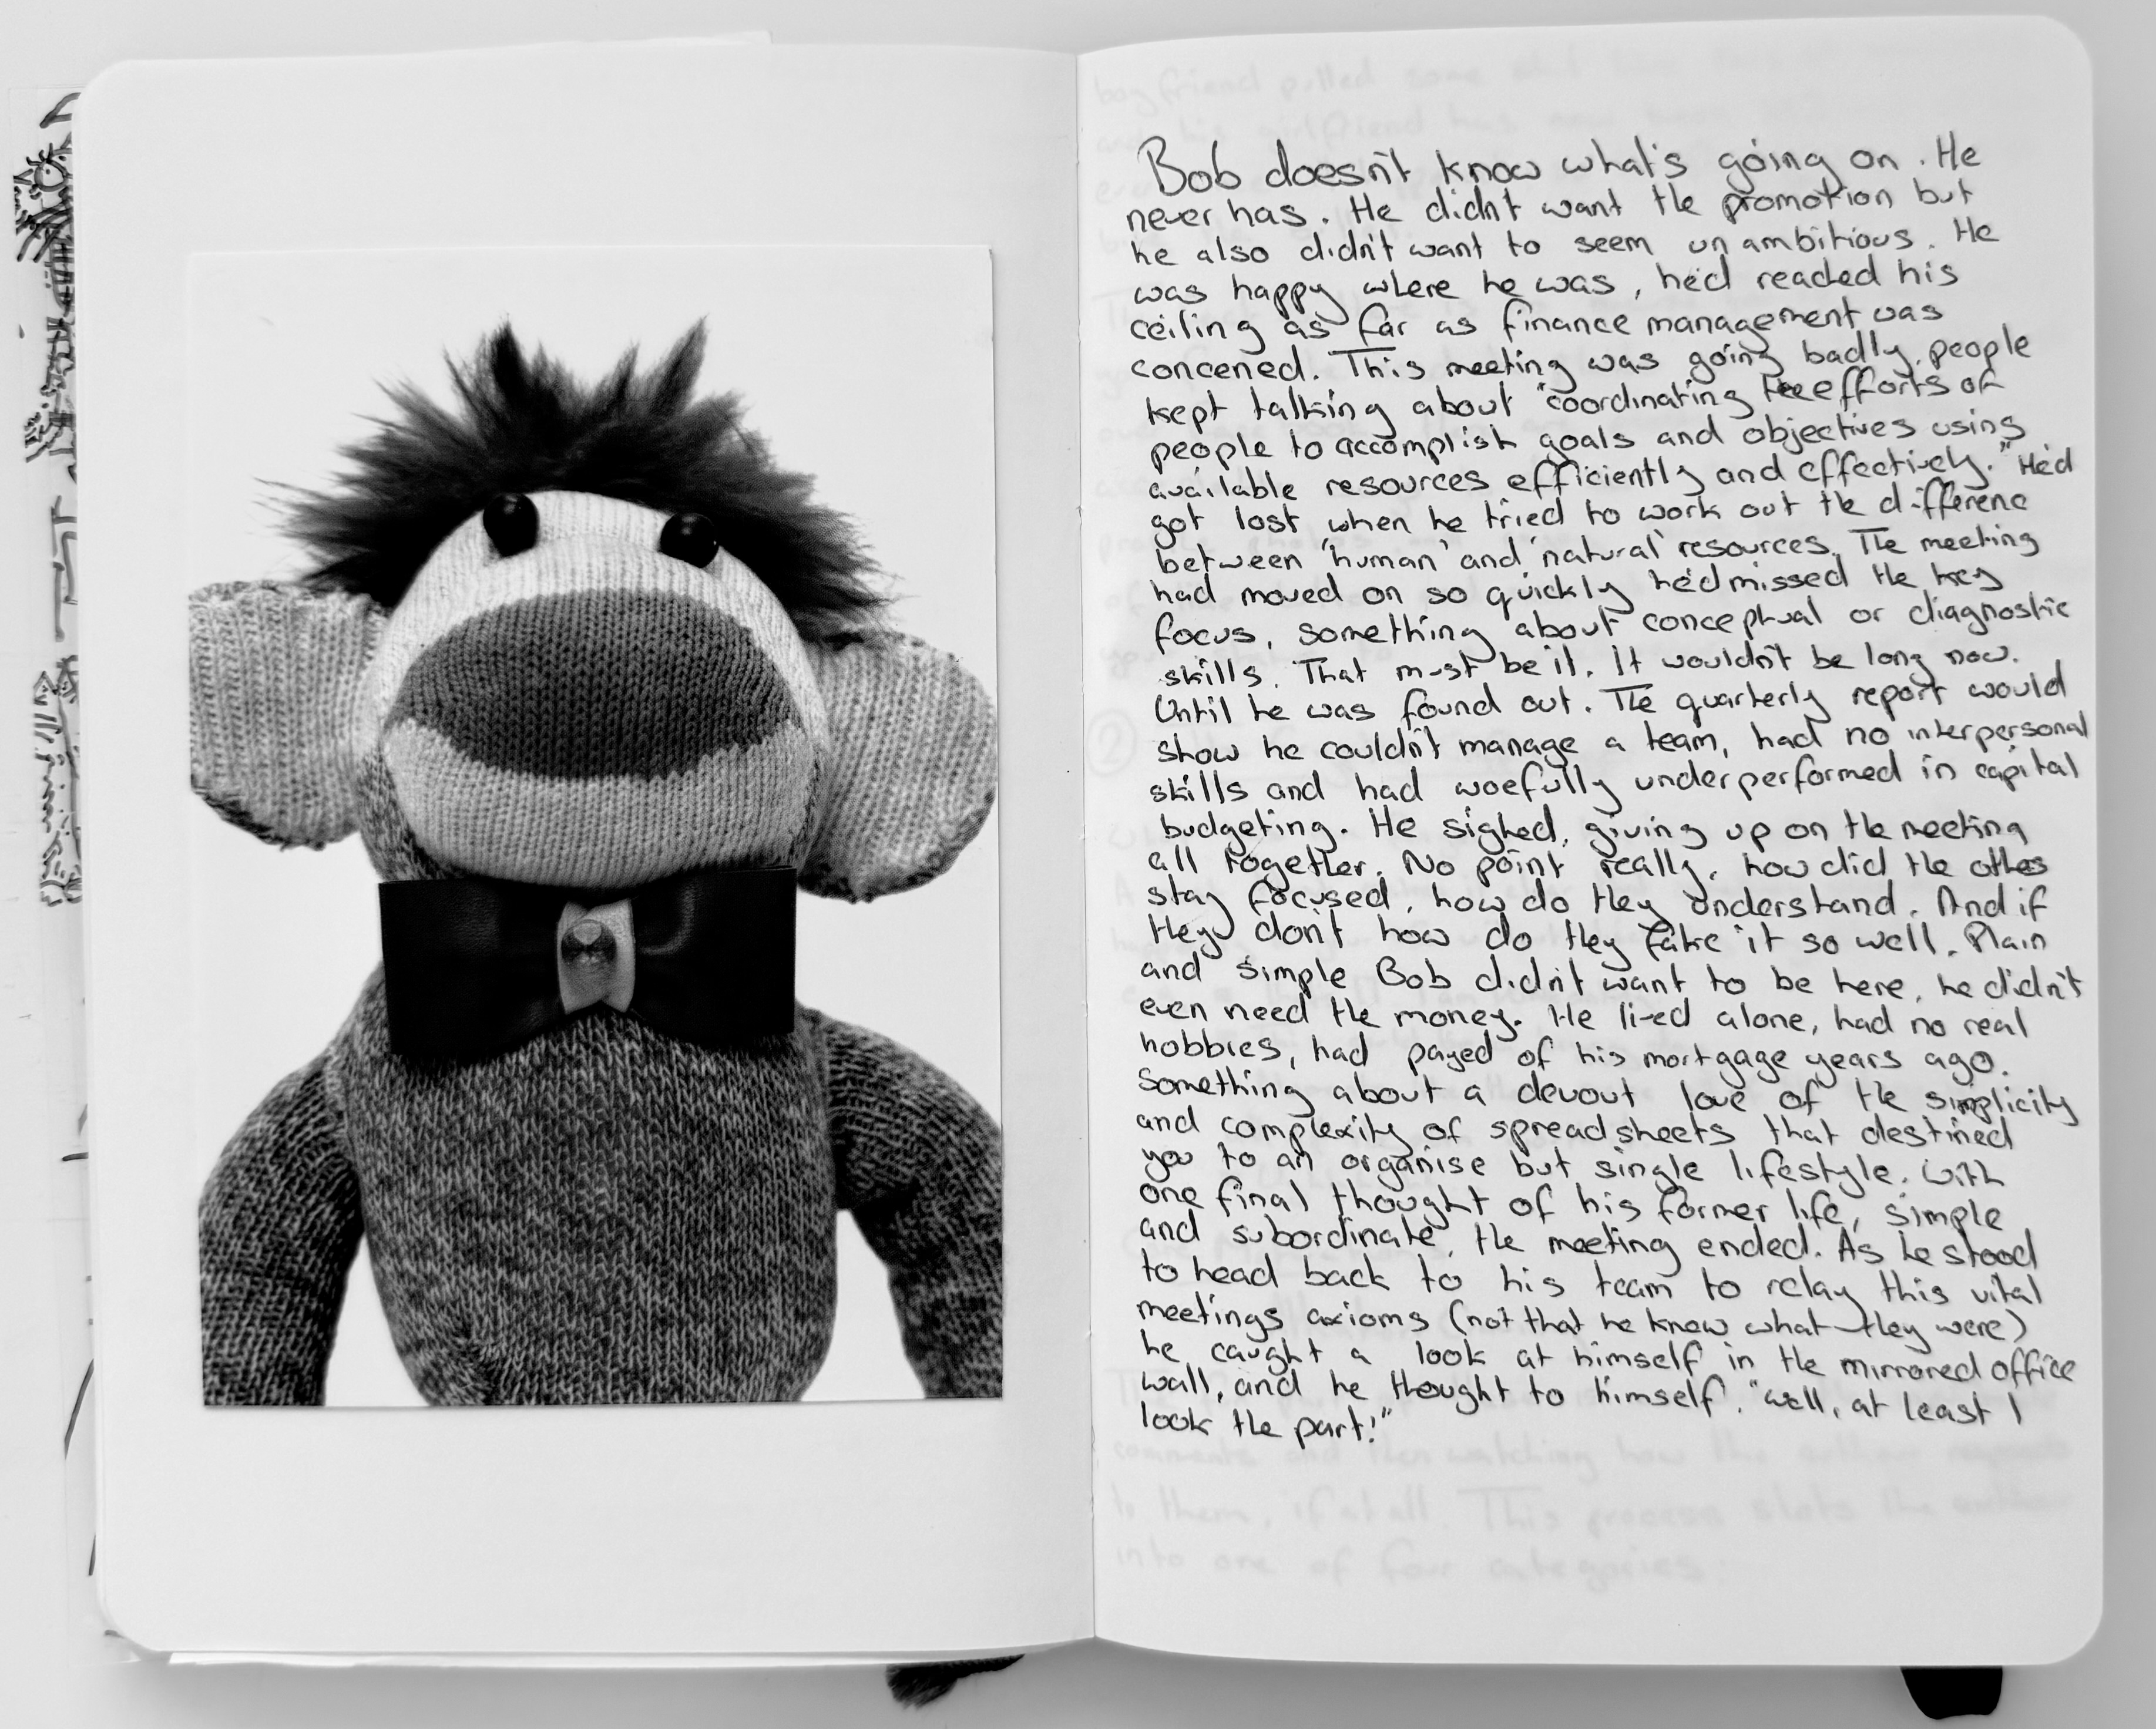 Bob doesn't know what's going on. He
never has. He didn't want the promotion but
he also didn't want to seem unambitious. He
was happy where he was, he'd reached his
ceiling as far as finance management was
concened. This meeting was going badly, people
kept talking about "coordinating the efforts of
people to accomplish goals and objectives using
available resources efficiently and effectively." He'd
got lost when he tried to work out the differenc
between 'human' and 'natural' resources. The meeting
had moved on so quickly he'd missed the key
focus, something about conceptual or diagnostic
skills. That must be it. It wouldn't be long now.
Until he was found out. The quarterly report would
show he couldn't manage a team, had no interpersonal
skills and had woefully underperformed in capital
budgeting. He sighed, giving up on the meeting
all together. No point really, how did the others
stay focused, how do they understand. And if
they don't how do they fake it so well. Plain
and simple Bob didn't want to be here, he didn't
even need the money. He lived alone, had no real
hobbies, had payed of his mortgage years ago.
Something about a devout love of the simplicity
and complexity of spreadsheets that destined
you to an organise but single lifestyle. With
one final thought of his former life, simple
and subordinate, the meeting ended. As he stood
to head back to his team to relay this vital
meetings axioms (not that he knew what they were)
he caught a look at himself in the mirrored office
wall, and he thought to himself, "well, at least I
look the part!"
comments and then watching how the author responds
to them, if at all. This process slots the author
into one of four categories.